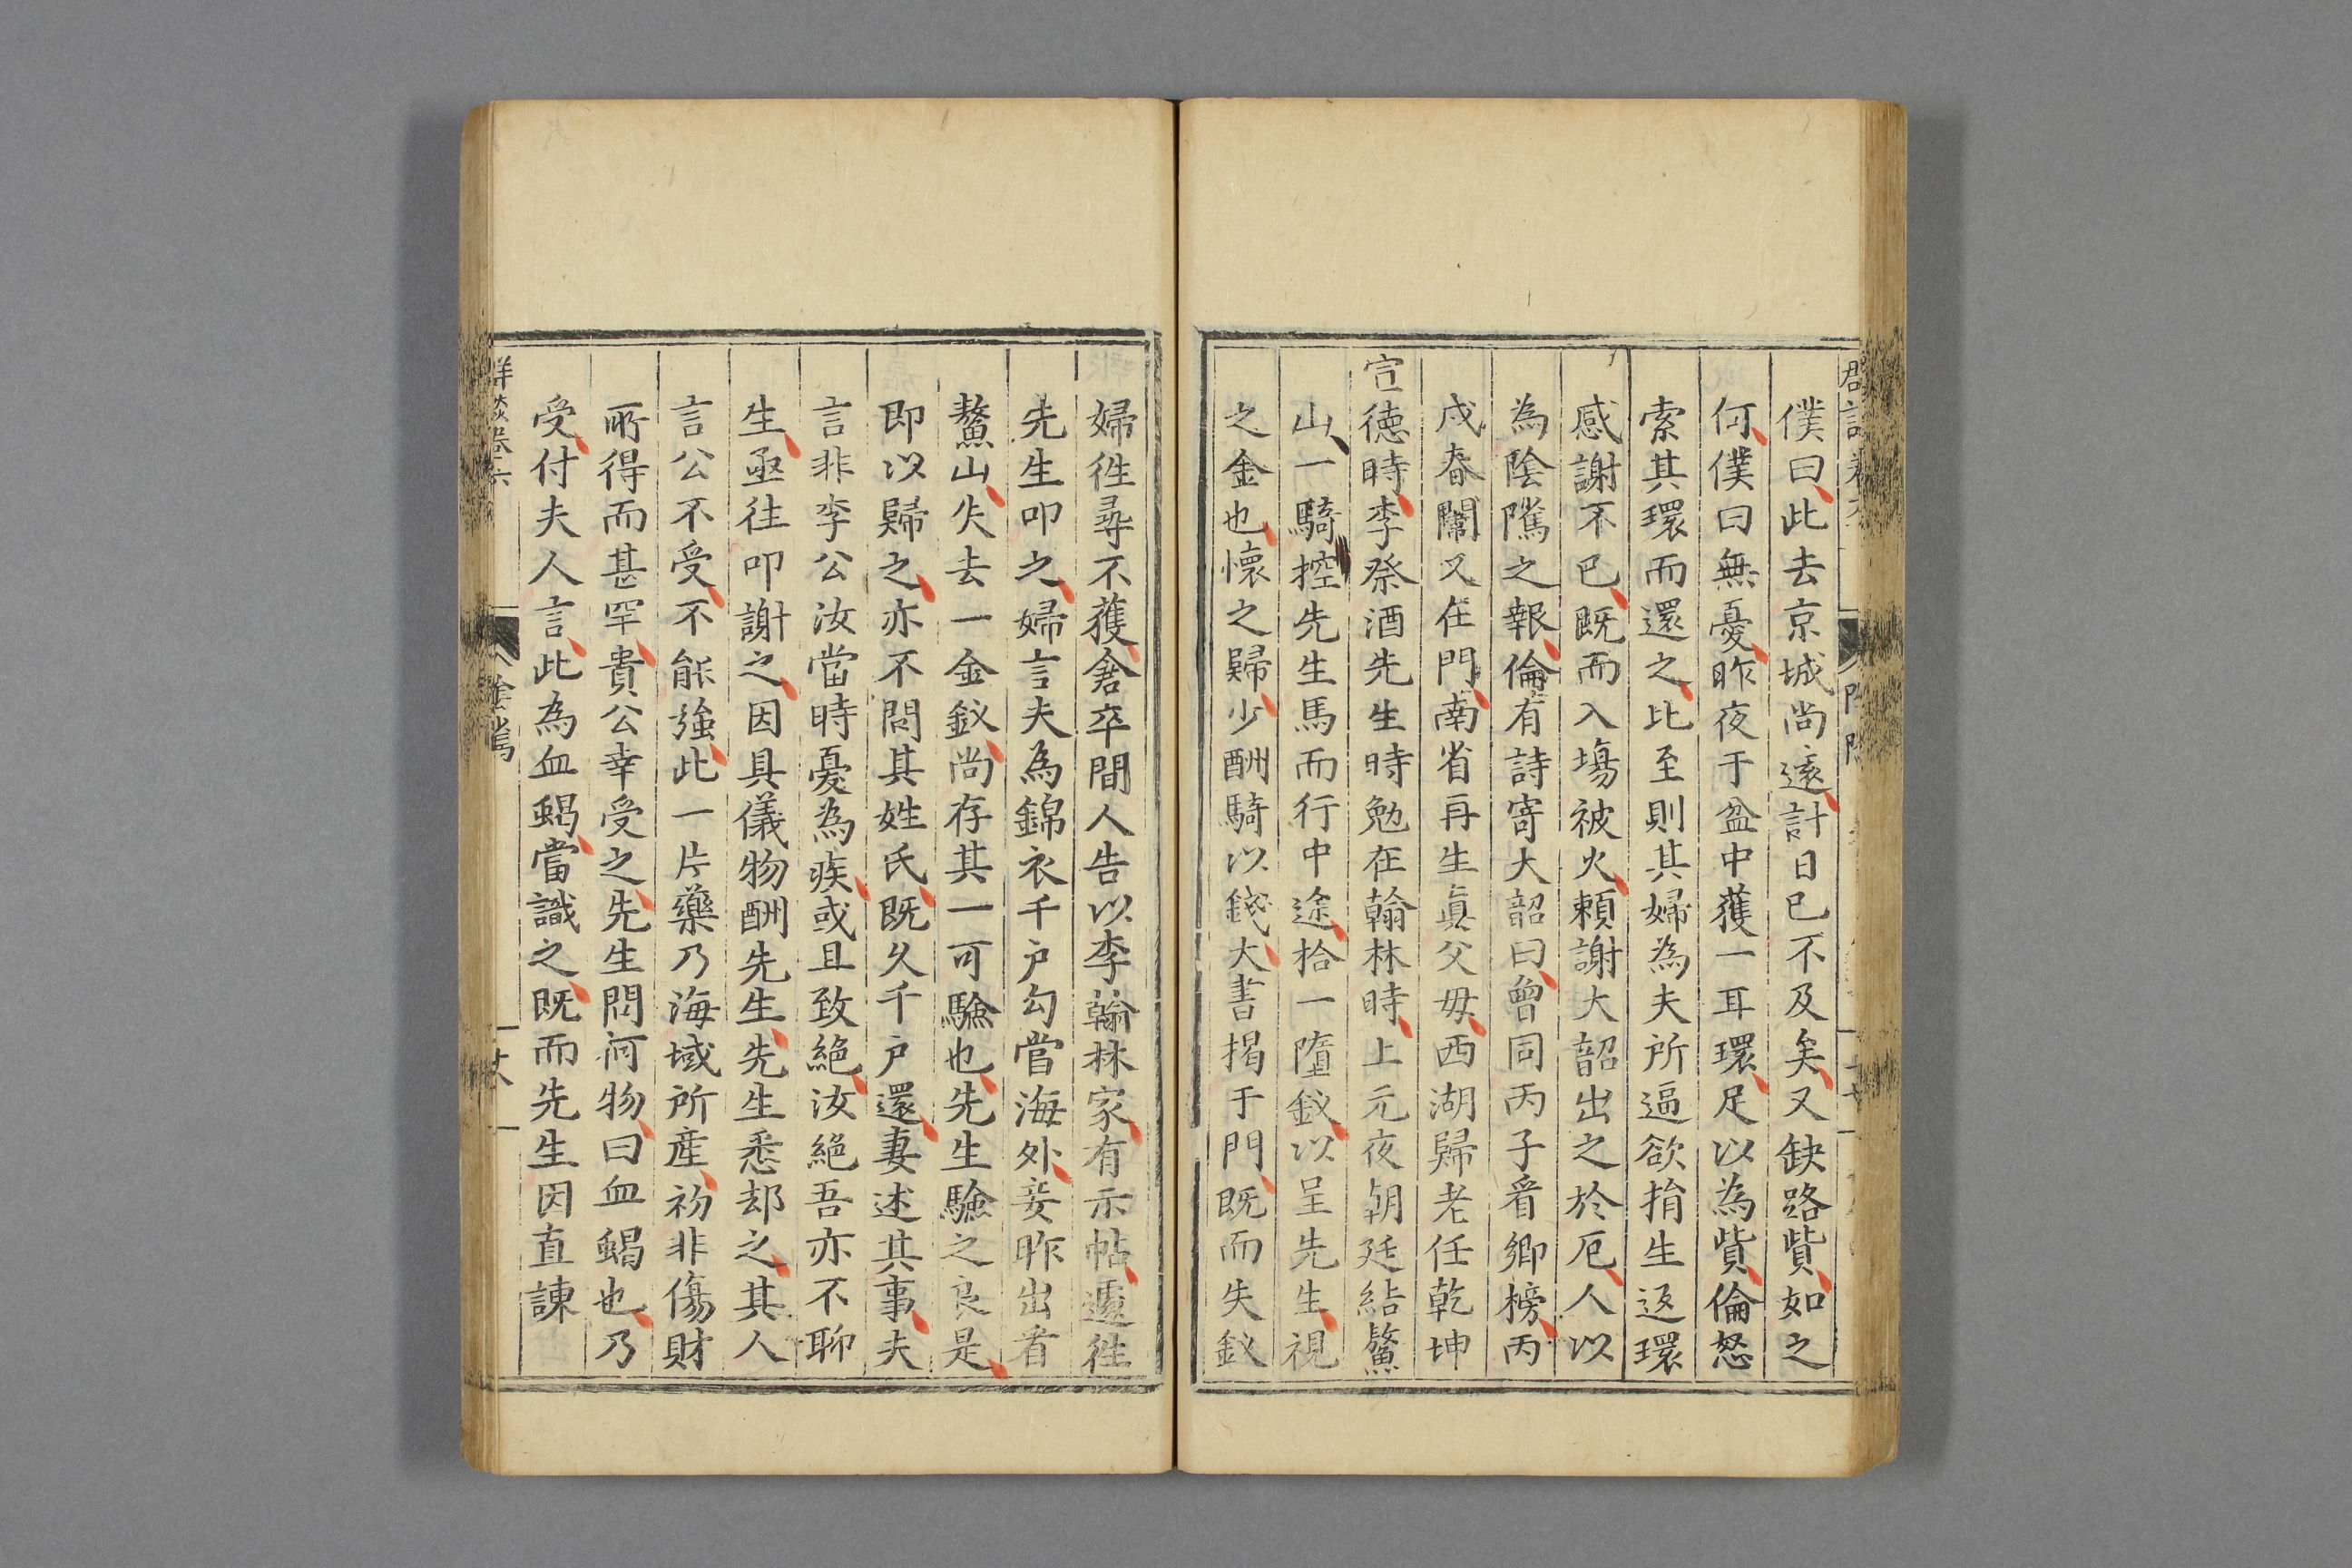 僕曰此去京城尚遠計日已不及矣又缺路貲如之
何僕曰無憂昨夜于盆中獲一耳環足以為貲倫怒
索其環而還之比至則其婦為夫所逼欲捐生返環
感謝不已既而入塲被火頼謝大韶出之於厄人以
為陰隲之報倫有詩寄大韶曰曾同丙子看鄉榜丙
戍春闈又在門南省再生眞父母西湖歸老任乾坤
宣德時李祭酒先生時勉在翰林時上元夜朝廷結鰲
山一騎控先生馬而行中途拾一墮釵以呈先生視
之金也懷之歸少酬騎以錢大書揭于門既而失釵
婦徃尋不獲倉卒間人告以李翰林家有示帖遽徃
先生叩之婦言夫為錦衣千户勾當海外妾昨出看
鰲山失去一金釵尚存其一可驗也先生驗之良是
即以歸之亦不問其姓氏既久千户還妻述其事夫
言非李公汝當時憂為疾或且致絶汝絶吾亦不聊
生亟往叩謝之因具儀物酬先生先生悉却之其人
言公不受不能強此一片藥乃海域所産初非傷財
所得而甚罕貴公幸受之先生問何物曰血蝎也乃
受付夫人言此為血蝎當識之既而先生因直諫
羣談卷六
陰隲